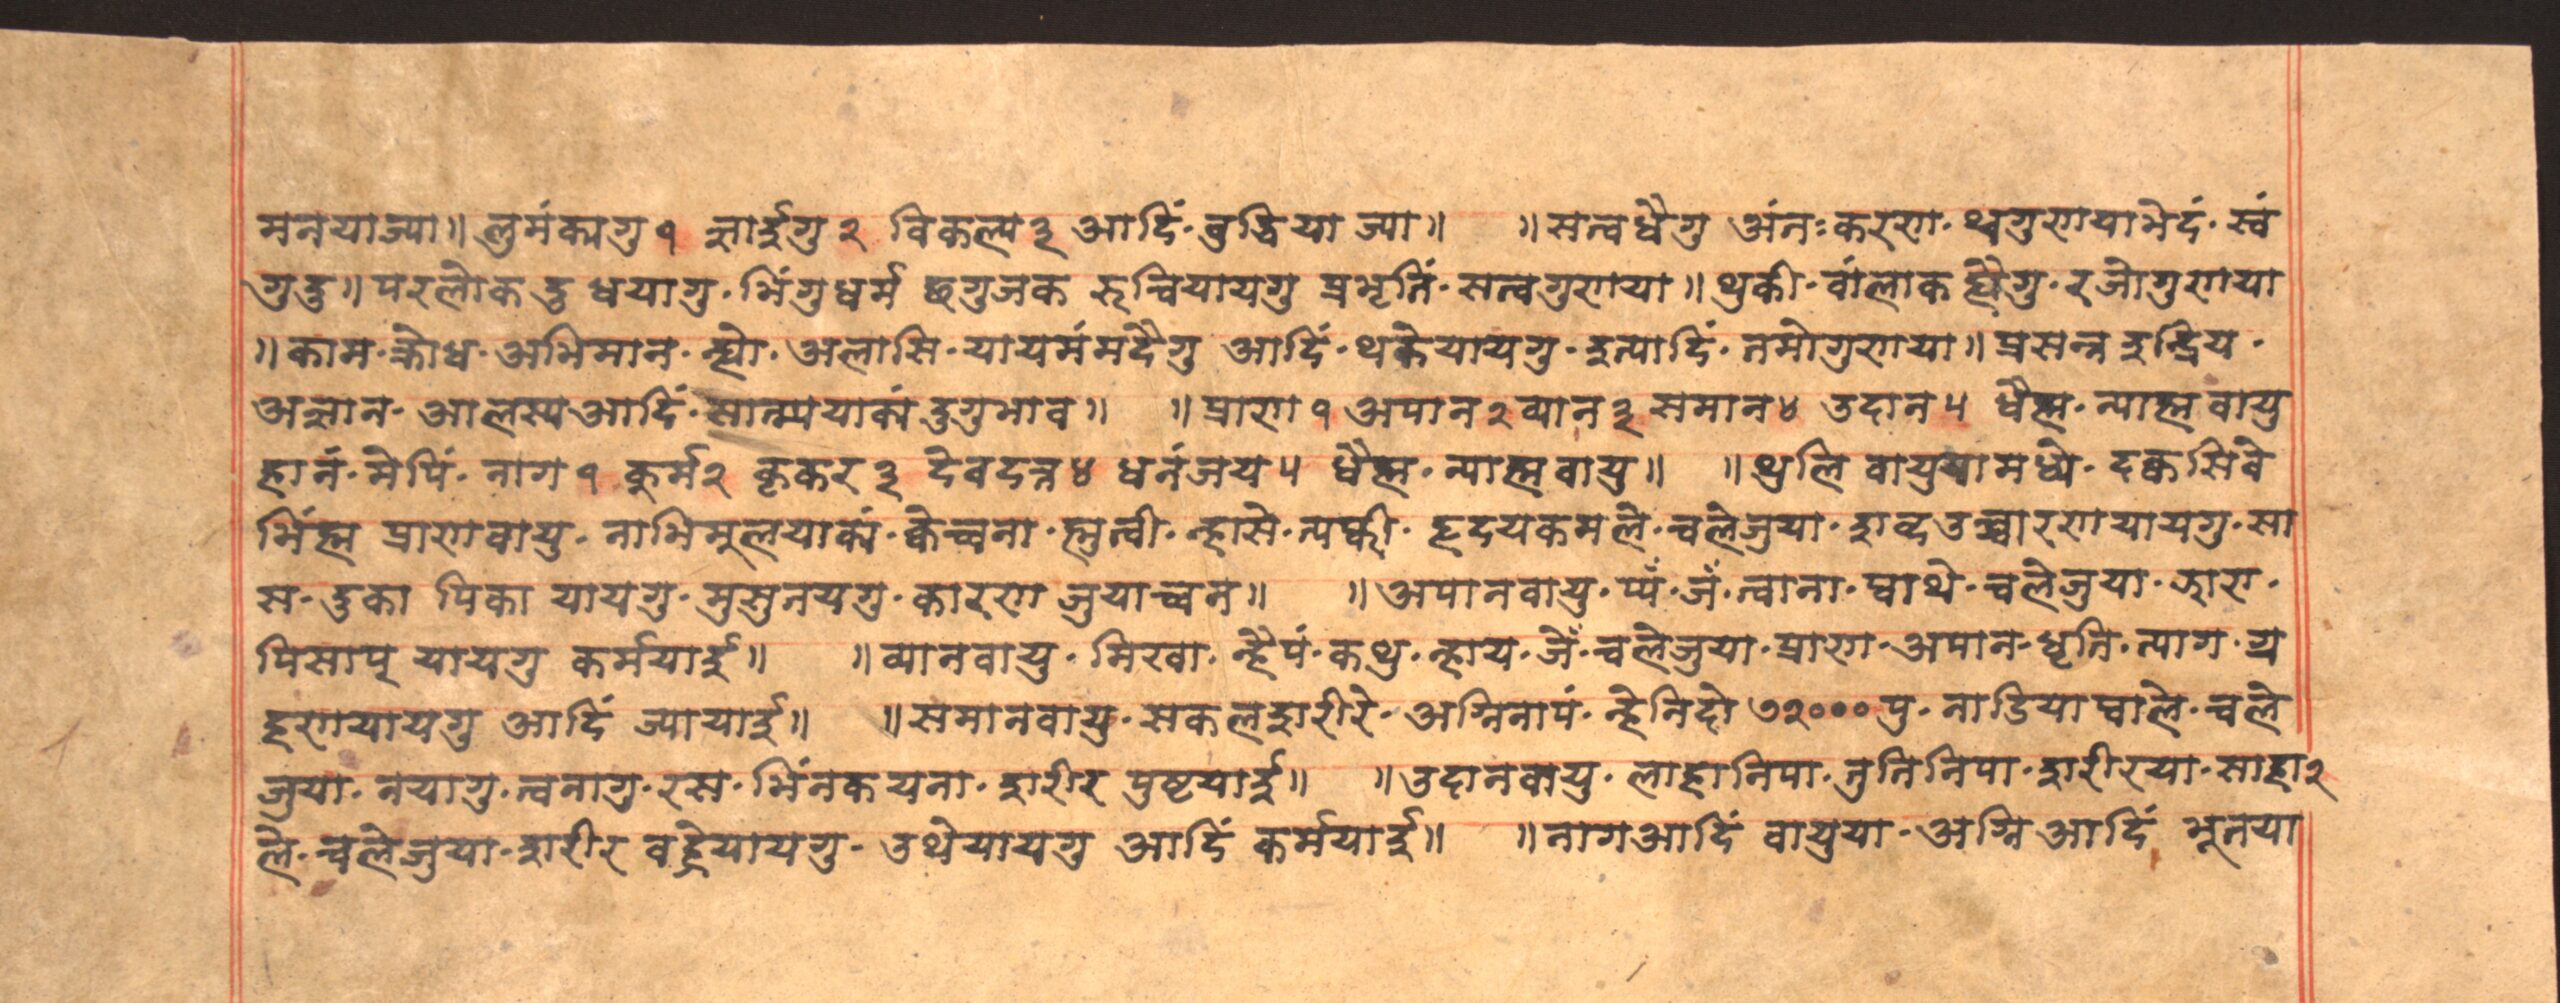 मनयाज्या॥ लुमंक्यागु १ ज्ञार्इगु २ विकल्प ३ आदिं॰ बुद्धिया ज्या॥ ॥सत्वधैगु अंतःकरण॰ थ्वगुणयाभेदं॰ स्वं
गुदु॥ परलोक दु धयागु॰ भिंगुधर्म छगुजक रुच्चियायगु प्रभृतिं॰ सत्वगुणया॥ थुकी॰ वांलाक च्वैगु॰ रजोगुणया
॥काम॰ क्रोध॰ अभिमान॰ न्ह्यो॰ अलासि॰ यायमंमदैगु आदिं॰ थकेयायगु॰ इत्यादिं॰ तमोगुणया॥ प्रसन्न इन्द्रिय॰
अज्ञान॰ आलस्य आदिं॰ सात्म्ययाकं दुगुभाव॥ ॥प्राण १ अपान २ व्यान ३ समान ४ उदान ५ धैह्म॰ न्याह्म वायु
हानं॰ मेपिं॰ नाग १ कुर्म २ कृकर ३ देवदत्त ४ धनंजय ५ धैह्म॰ न्याह्मवायु॥ ॥थुलि वायुयामध्ये॰ दक्वसिवे
भिंह्म प्राणवायु॰ नाभिमूलयाकं॰ क्वेच्वना॰ ह्मुत्वी॰ न्हासे॰ त्यफ्की॰ हृदयकमले॰ च्वलेजुया॰ शब्दउच्चारणयायगु॰ सा
स॰ दुका पिका यायगु॰ मुसुनयगु॰ कारण जुयाच्वन॥ ॥अपानवायु॰ प्यं॰ जं॰ त्वाना॰ घ्वाथे॰ च्वलेजुया॰ झारा॰
पिसाप् यायगु कर्मयार्इ॥ ॥व्यानवायु॰ मिखा॰ न्हैपं॰ कथु॰ न्हाय॰ जं॰ च्वलेजुया॰ प्राण॰ अपान॰ धृति॰ त्याग॰ ग्र
हणयायगु आदिं ज्यायार्इ॥ ॥समानवायु॰ सकलशरीरे॰ अग्निनापं॰ न्हेनिदो ७२००० पु॰ नाडियाघ्वाले॰ च्वले
जुया॰ नयागु॰ त्वनागु॰ रस॰ भिंनकयना॰ शरीर पुष्टयार्इ॥ ॥उदानवायु॰ लाहानिपा॰ तुतिनिपा॰ शरीरया॰ साहार
ले॰ च्वलेजुया॰ शरीर वह्रेयायगु॰ उथेयायगु आदिं कर्मयार्इ॥ ॥नागआदिं वायुया॰ अग्नि आदिं भूतया